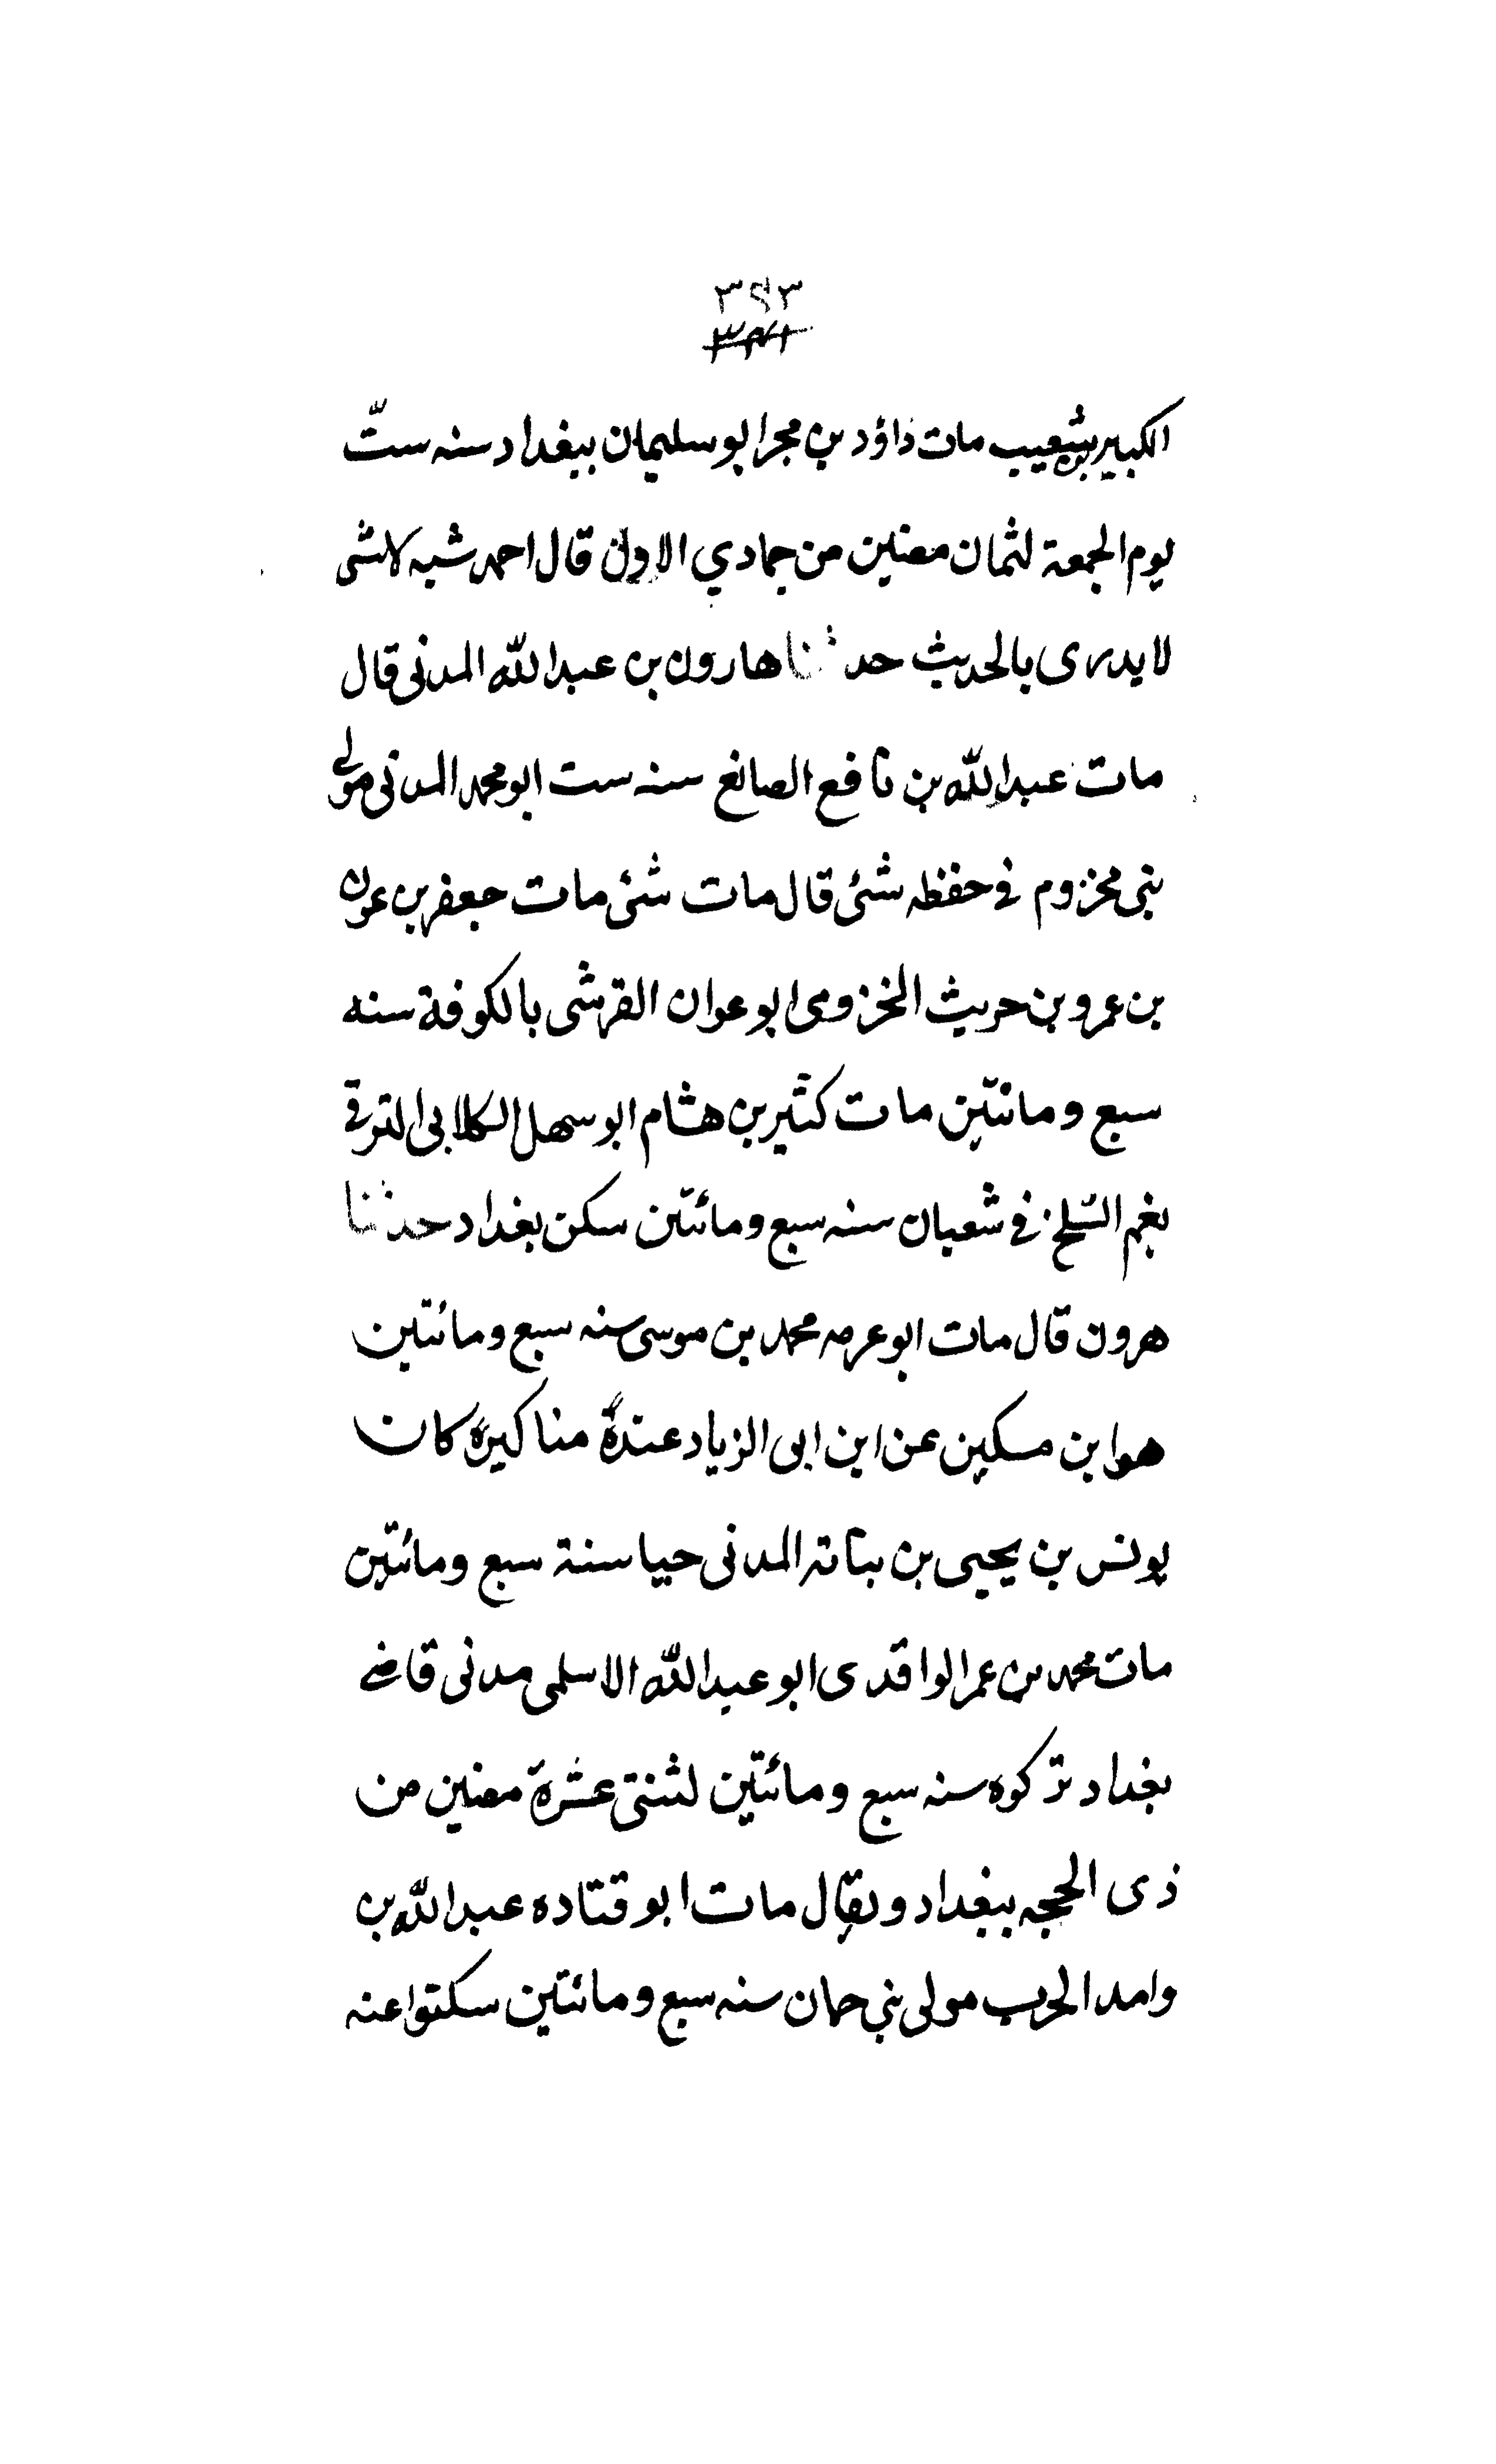 ٣٩٣
الكبير بن شعيب مات داؤد بن مجر ابو سليمان ببغداد سنه ستّ
يوم الجمعة لثمان مضين من جمادي الاولى قال احمد شبه لا شى
لا يدرى بالحديث حدثنا هارون بن عبد الله المدنى قال
مات عبد الله بن نافع الصائغ سنه ست ابو محمد المدنى مولى
بنى مخزوم فى حفظه شئ قال مات شئ مات جعفر بن عون
بن عمرو بن حريث الخزومى ابو عوان القرشى بالكوفة سنه
سبع ومائتين مات كثير بن هشام ابو سهل الكلابى الترقى
بغم السّلخ فى شعبان سنه سبع ومائتين سكن بغداد حدثنا
هرون قال مات ابو عرمه محمد بن موسى سنه سبع ومائتين
هو ابن مسكين عن ابن ابى الزياد عندهٗ مناكيرهٗ كان
يونس بن يحيى بن بناته المدنى حيا سنة سبع ومائتين
مات محمد بن عمر الواقدى ابو عبد الله الاسلمى مدنى قاضى
بغداد تركوه سنه سبع ومائتين لثنتى عشرة مضين من
ذى الحجه ببغداد ويقال مات ابو قتاده عبد الله بن
وامد الحرب مولى بنى حمان سنه سبع ومائتين سكتوا عنه